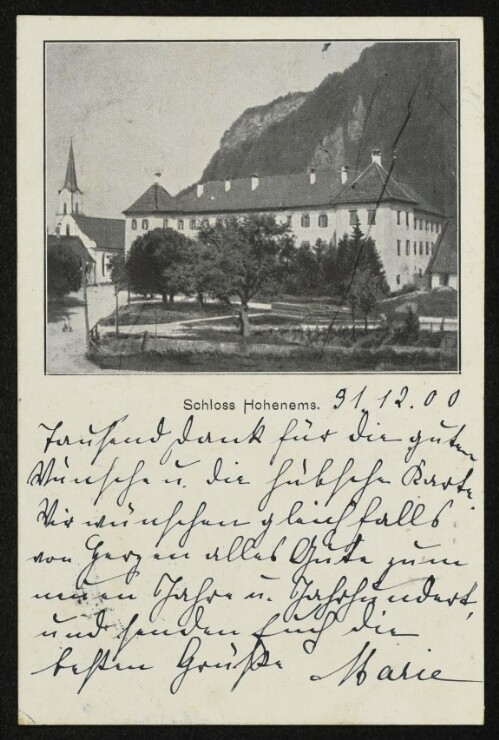 Schloss Hohenems. 31.12.00
Tausend Dank für die guten
Wünsche u. die hübsche Karte.
Wir wünschen gleichfalls
von Herzen alles Gute zum
neuen Jahre u. Jahrhundert,
und senden Euch die
besten Grüße Marie